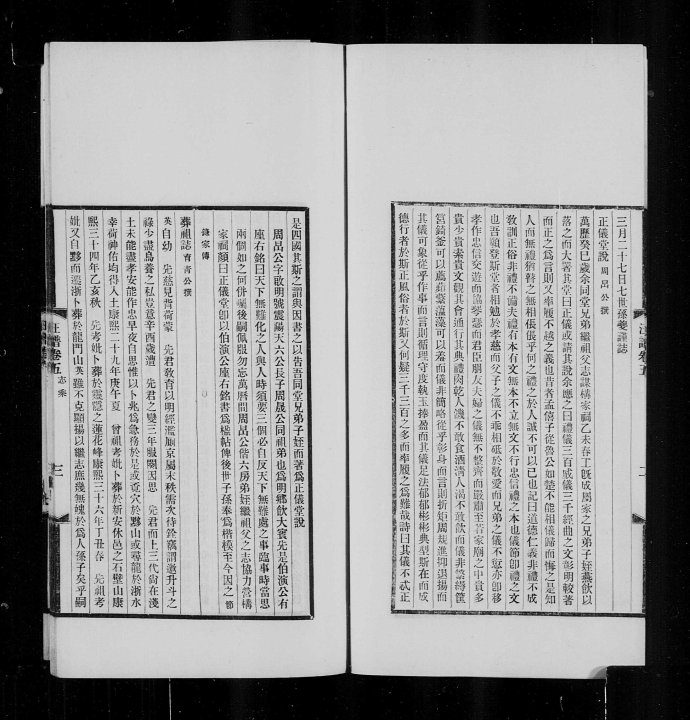 三月二十七日七世孫夔謹誌
正儀堂說　周呂公撰
萬歷癸巳歲余同堂兄弟繼祖父志謀構家祠乙未春工旣成周家之兄弟子姪燕飲以
落之而大署其堂曰正儀或請其說余應之曰禮儀三百威儀三千經曲之文彰明較著
而正之為言則又率履不越之義也昔者孟僖子從魯公如楚不能相儀歸而悔之是知
人而無禮猶瞽之無相倀倀乎何之禮之於人誠不可以已也記曰道德仁義非禮不成
敎訓正俗非禮不備夫禮有本有文無本不立無文不行忠信禮之本也儀節卽禮之文
也吾願登斯堂者相勉於孝慈而父子之儀不乖相砥於敬愛而兄弟之儀不愆亦卽移
孝作忠信交遊而諧琴瑟而君臣朋友夫婦之儀無不整齊而嚴肅至若家廟之中貴多
貴少貴素貴文觀其會通行其典禮肉乾人饑不敢食酒淸人渴不敢飲而儀非繁縟筐
筥錡釜可以薦蘋蘩蕰藻可以羞而儀非簡略從乎彰身而言則折矩周規進抑退揚而
其儀可象從乎作事而言則循理守度執玉捧盈而其儀足法郁郁彬彬典型斯在而成
德行者於斯正風俗者於斯又何疑三千三百之多而率履之為難哉詩曰其儀不忒正
汪譜卷五
是四國其斯之謂與因書之以告吾同堂兄弟子姪而著為正儀堂說
周呂公字啟明號震陽天六公長子周晟公同祖弟也為明鄉飲大賓先是伯演公有
座右銘曰天下無難化之人與人時須要三個必自反天下無難處之事臨事時當思
兩個如之何併囑後嗣佩服勿忘萬曆間周呂公偕六房弟姪繼祖父之志協力營構
家祠顏曰正儀堂卽以伯演公座右銘書為楹帖俾後世子孫奉為楷模至今因之 節
錄家傳
葬祖誌　育青公撰
英自幼　先慈見背荷蒙　先君敎育以明經濫厠京屬末秩需次待銓竊謂遨升斗之
祿少盡烏養之私豈意辛酉歲遭　先君之變三年服闋因思　先君而上三代尙在淺
土未能盡孝安能作忠早夜自思惟以卜兆為急務於是或覓穴於黟山或尋龍於浙水
幸荷神佑均得入土康熙二十九年庚午夏　曾祖考妣卜葬於新安休邑之石壁山康
熙三十四年乙亥秋　先考妣卜葬於靈隱之蓮花峰康熙三十六年丁丑春　先祖考
妣又自黟而遷浙卜葬於龍門山英雖不克顯揚以繼志庶幾無愧於為人孫子矣乎嗣
汪譜卷五　志乘　三